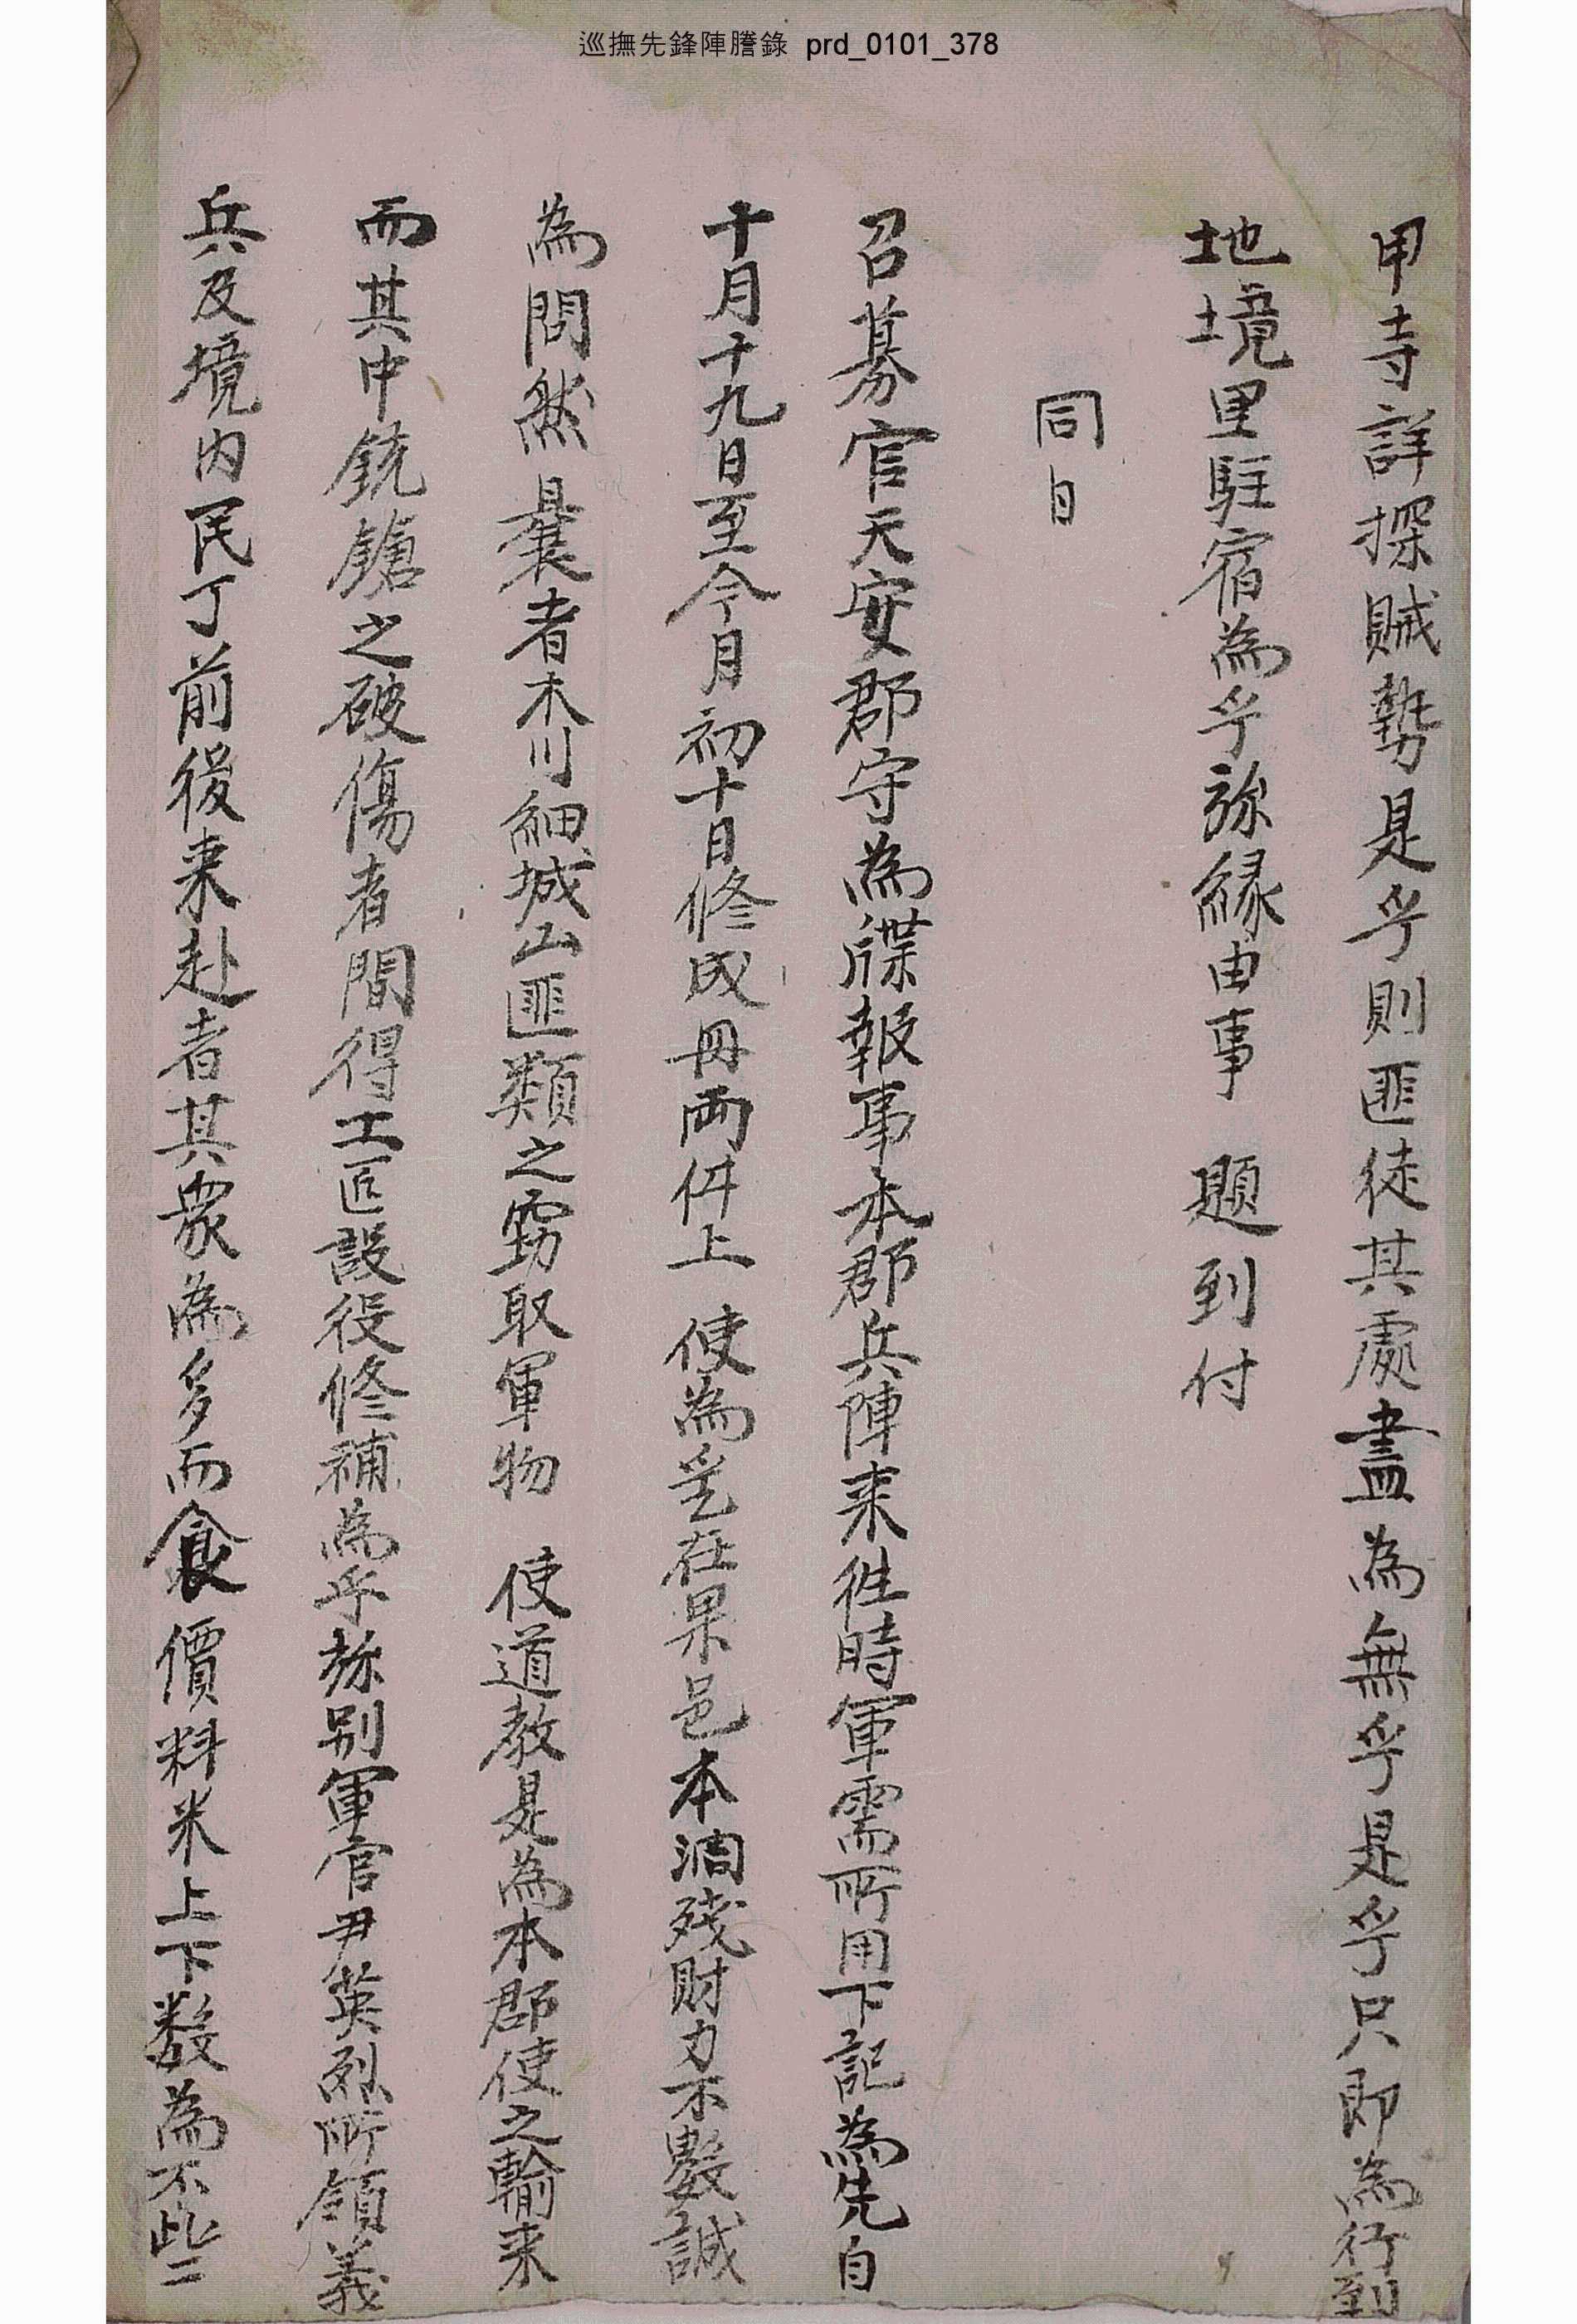 巡撫先鋒陣謄錄 prd_0101_378
甲寺詳探賊勢是乎則匪徒其處盡為無乎是乎只即為行到
地境里駐宿為乎旀緣由事 題到付
同日
召募官天安郡守為牒報事本郡兵陣来徃時軍需所用下記為先自
十月十九日至今月初十日修成冊両件上 使為乎在果邑本凋殘財力不敷誠
為悶然曩者木川細城山匪類之竊取軍物 使道教是為本郡使之輸来
而其中銃鎗之破傷者間得工匠設役修補為乎旀別軍官尹英烈所領義
兵及境内民丁前後来赴者其衆為多而食價料米上下数為不些二